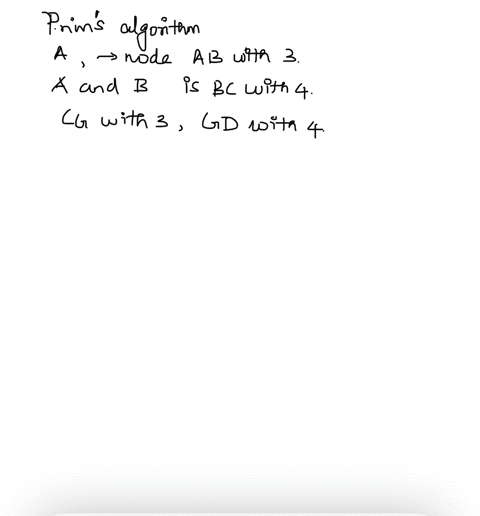 Prim's algorithm
A, → node AB with 3.
A and B is BC with 4.
CG with 3, GD with 4